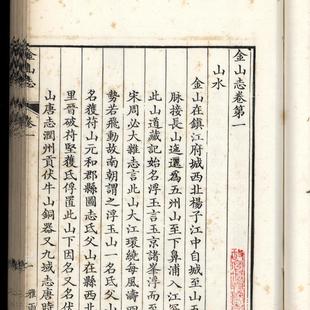 金山志卷第一
山水
金山在鎮江府城西北楊子江中自城至山五
脉接長山迤邐為五州山至下鼻浦入江
此山道藏記始名浮玉言玉京諸峯浮而至
宋周必大雜志言此山大江環繞每風濤四
勢若飛動故南朝謂之浮玉山一名氏父山
名獲苻山元和郡縣圖志氏父山在縣西北
里晉破苻堅獲氐俘置此山下因名又名伏
山唐志潤州貢伏牛山銅器又九城志唐時
金山志
卷一
一
雅雨